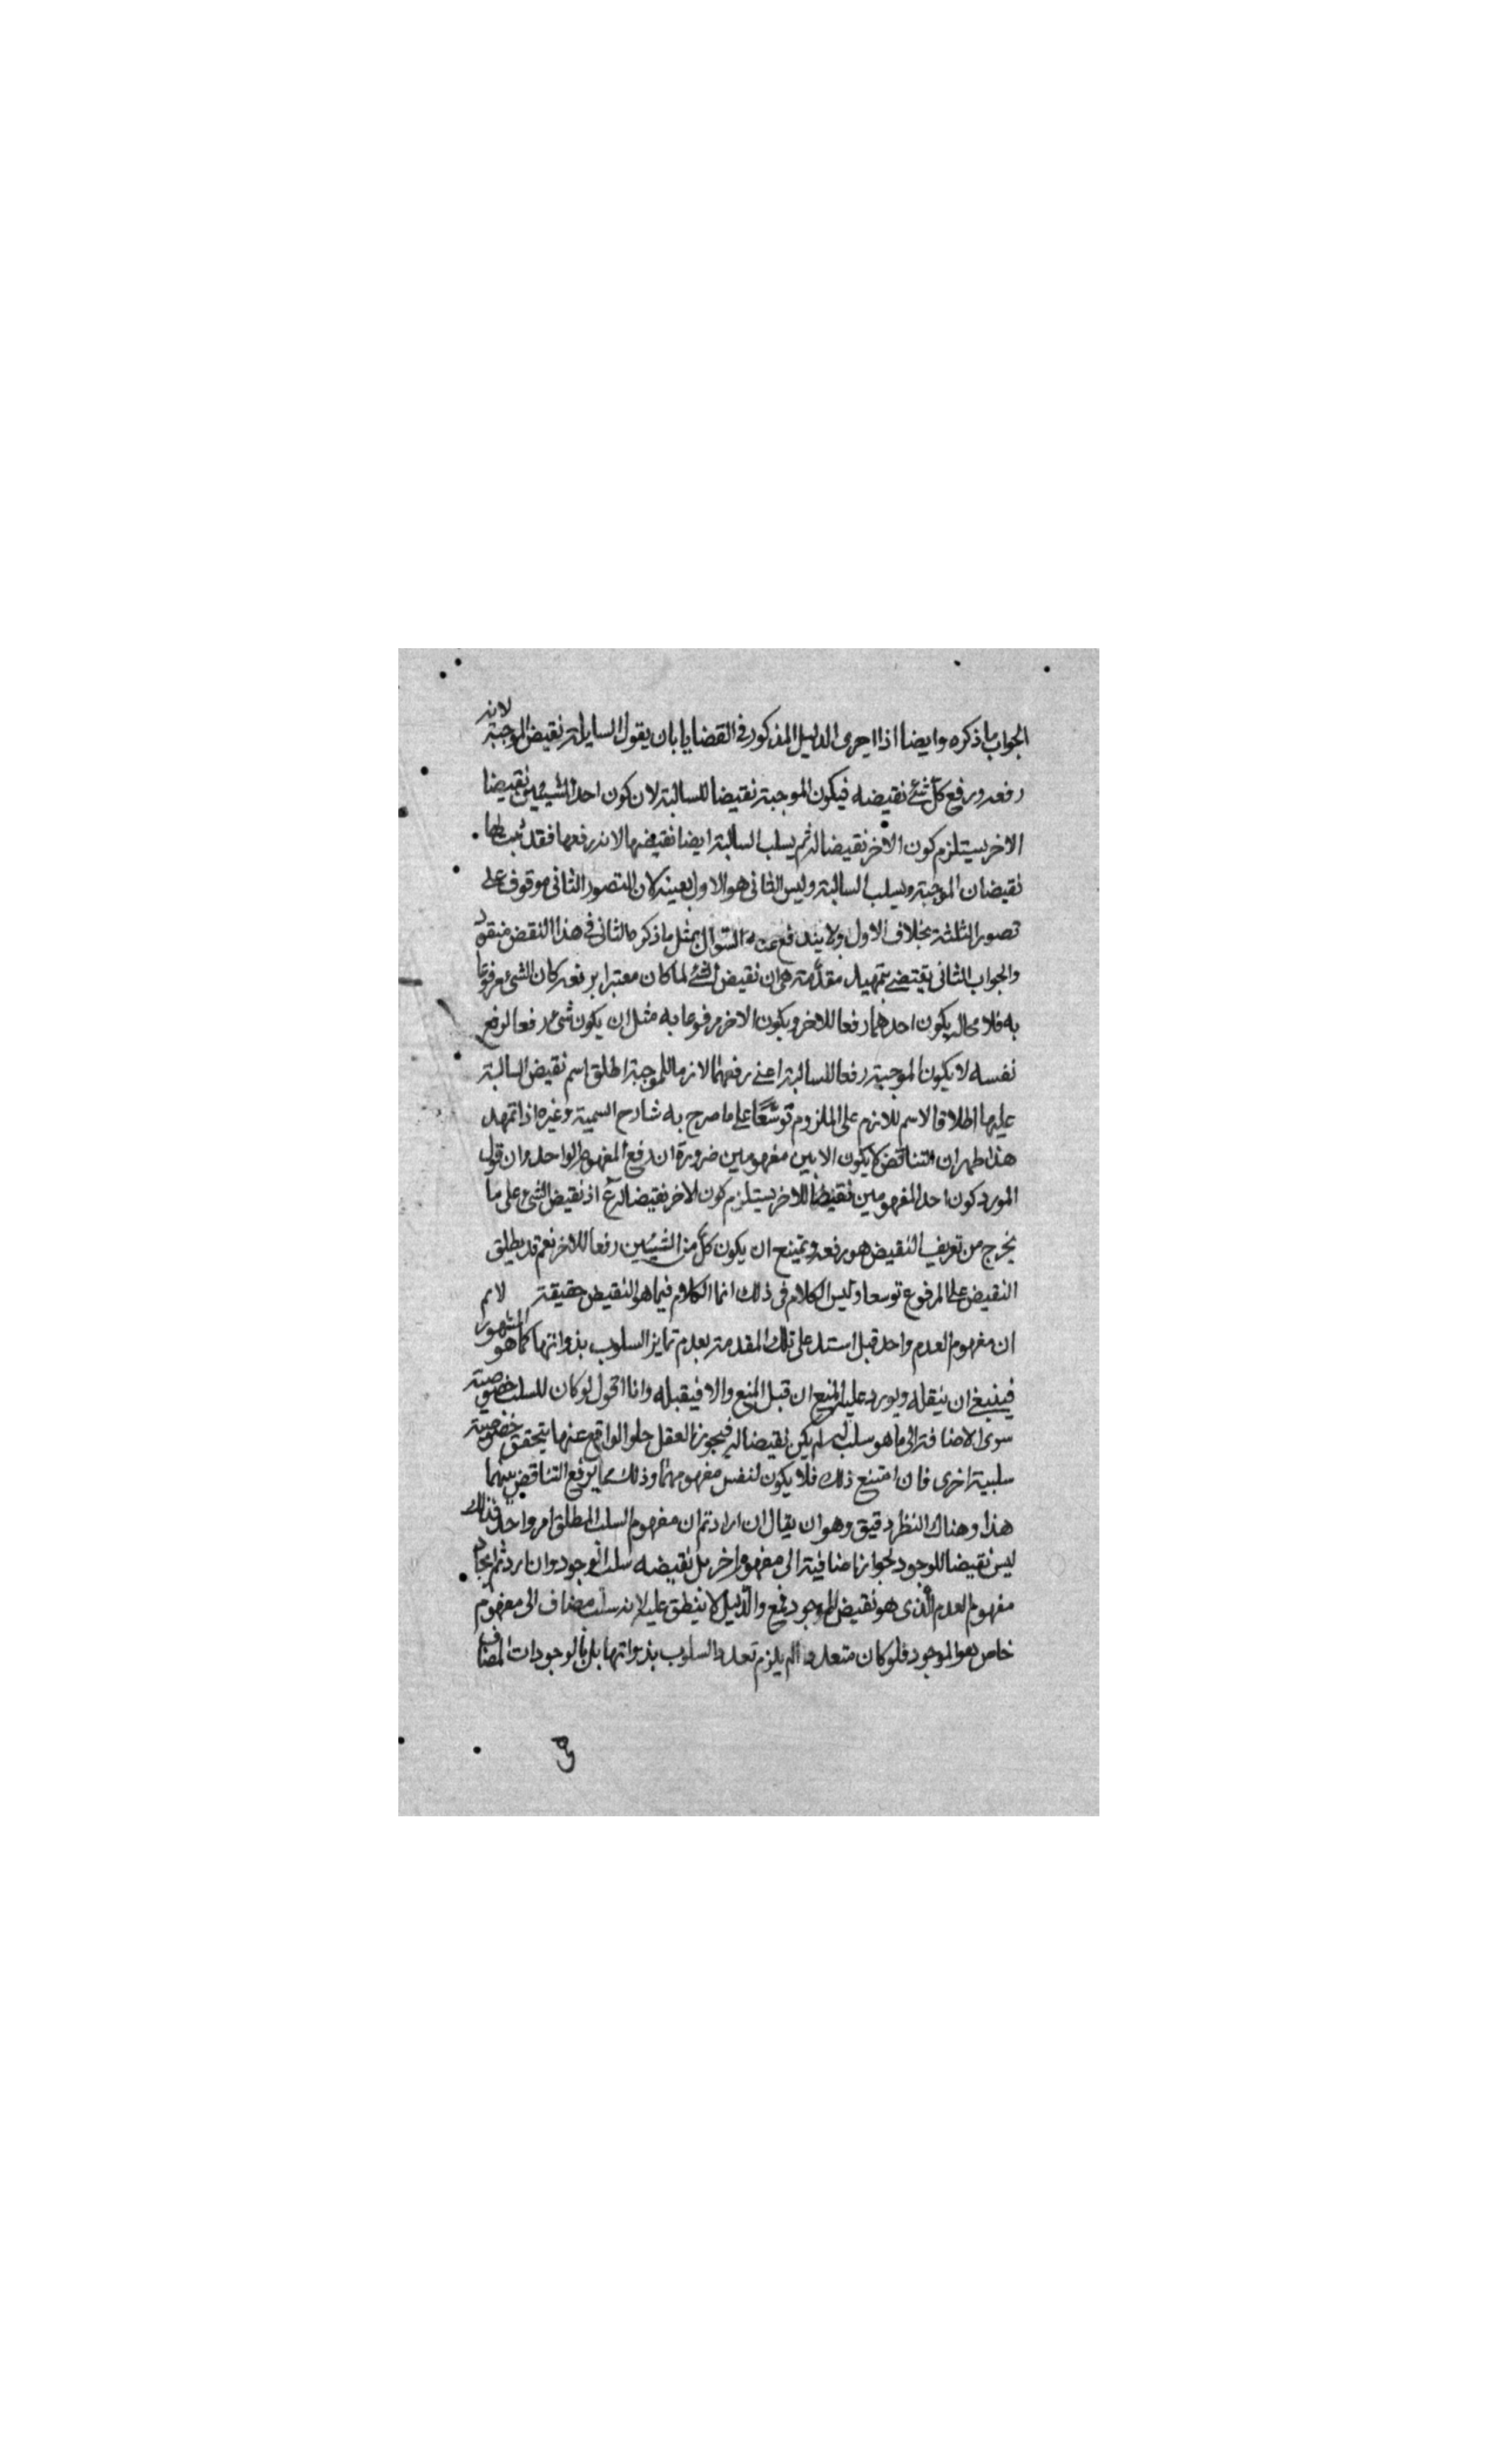 الجواب ما ذكره وايضا اذا اجرى الدليل المذكور في القضايا بان يقول السالبة نقيض الموجبة لانه
رفعه ورفع كل شئ نقيضه فيكون الموجبة نقيضا للسالبة لان كون احد الشيئين نقيضا
الاخر يستلزم كون الاخر نقيضا له ثم يسلب السالبة ايضا نقيضها لانه رفعها فقد ثبت لها
نقيضان الموجبة وسلب السالبة وليس الثانى هو الاول بعينه لان التصور الثانى موقوف على
تصور الثلثة بخلاف الاول ولا يندفع السؤال بمثل ما ذكره الثانى في هذا النقض
والجواب الثانى يقتضى تمهيد مقدمة هي ان نقيض الشئ لما كان معتبرا برفعه كان الشئ مرفوعا
به فلا محالة يكون احدهما رفعا للاخر ويكون الاخر مرفوعا به مثل ان يكون شئ رفعا لرفع
نفسه لا يكون الموجبة رفعا للسالبة اعنى رفعها لازما للموجبة اطلق اسم نقيض السالبة
عليها اطلاقا لاسم للازم على الملزوم توسّعًا على ما صرح به شارح السمية وغيره اذا تمهد
هذا ظهر ان التناقض لا يكون الا بين مفهومين ضرورة ان رفع المفهوم الواحد وان قول
المورد كون احد المفهومين نقيضا للاخر يستلزم كون الاخر نقيضا له اذ نقيض الشئ على ما
يخرج من تعريف النقيض هو رفعه ويمتنع ان يكون كل من الشيئين رفعا للاخر نعم قد يطلق
النقيض على المرفوع توسعا وليس الكلام في ذلك انما الكلام فيما هو النقيض حقيقة لا نم
ان مفهوم العدم واحد قيل استدل على تلك المقدمة بعدم تمايز السلوب بذواتها كما هو المشهور
فينبغى ان ينقله ويورد عليه المنع ان قبل المنع والا فيقبله وانا اقول لو كان للسلب خصوصية
سوى الاضافة الى ما هو سلب له لم يكن نقيضا له فيجوز العقل خلو الواقع عنها يتحقق خصوصية
سلبية اخرى فان امتنع ذلك فلا يكون لنفس مفهومهما وذلك مما يرفع التناقض بينهما
هذا وهناك النظر دقيق وهو ان يقال ان اردتم ان مفهوم السلب المطلق امر واحد فذلك
ليس نقيضا للوجود لجواز اضافية الى مفهوم اخر بل نقيضه سلب الوجود وان اردتم اتحاد
مفهوم العدم الذى هو نقيض للوجود فمنع والدليل لا ينطق عليه لانه سلب مضاف الى مفهوم
خاص هو الموجود فلو كان متعددا لم يلزم تعدد السلوب بذواتها بل بالوجودات المضاف